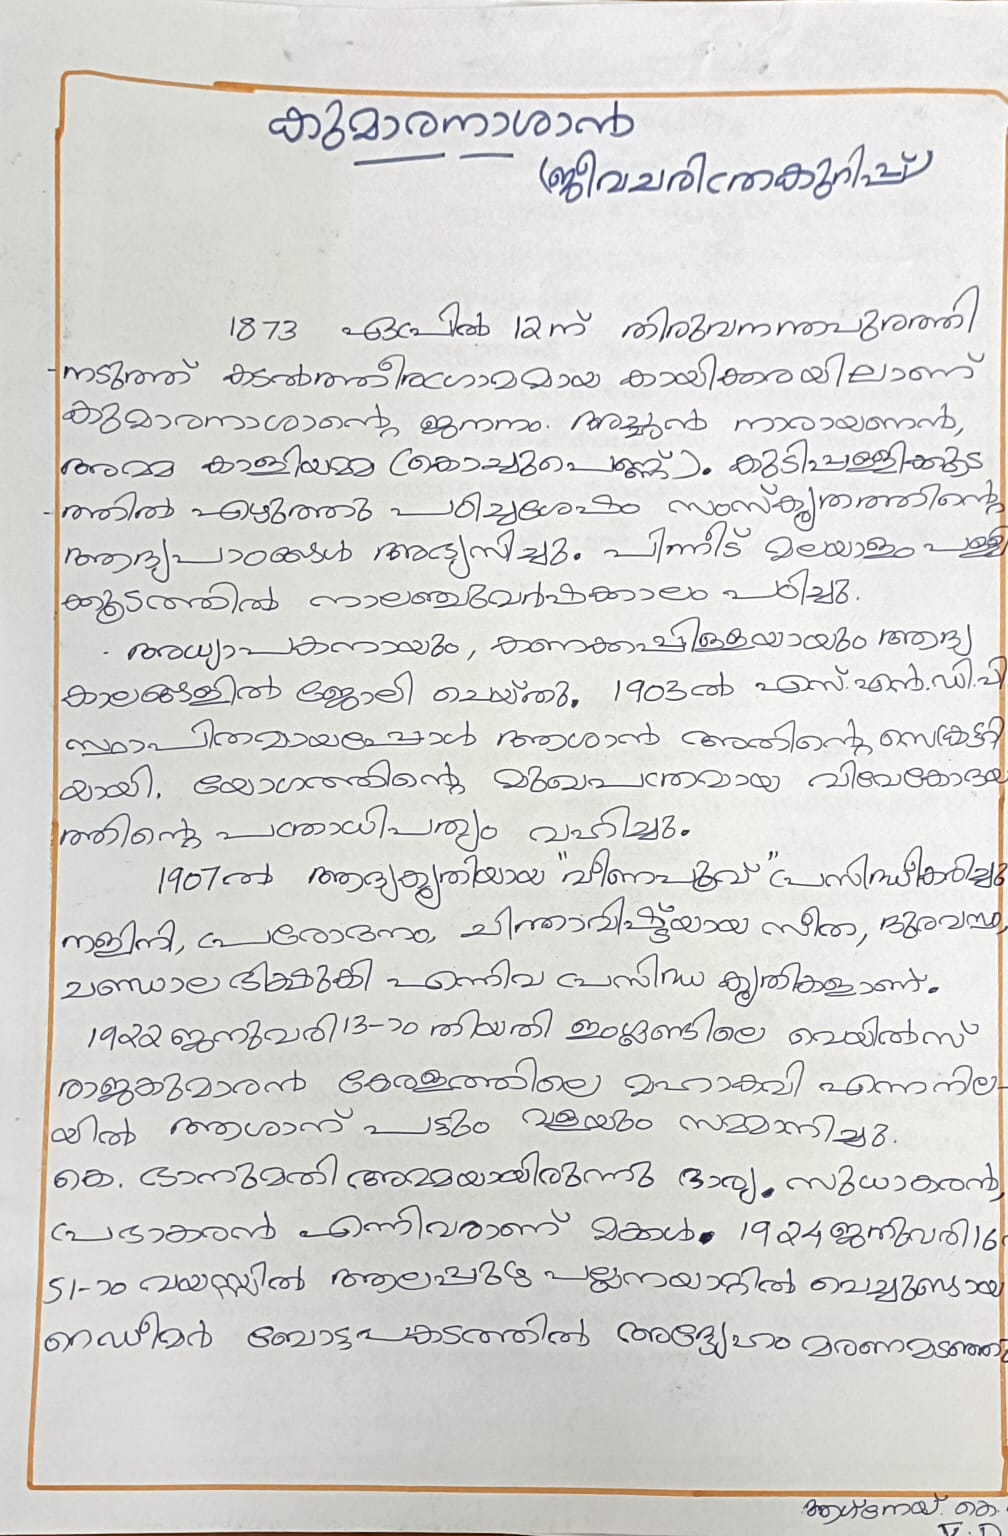 കുമാരനാശാൻ
(ജീവചരിത്രകുറിപ്പ്)
1873 ഏപ്രിൽ 12ന് തിരുവനന്തപുരത്തി
-നടുത്ത് കടൽത്തീരഗ്രാമമായ കായിക്കരയിലാണ്
കുമാരനാശാന്റെ ജനനം. അച്ഛൻ നാരായണൻ,
അമ്മ കാളിയമ്മ (കൊച്ചുപെണ്ണ്). കുടിപ്പള്ളിക്കൂട
-ത്തിൽ എഴുത്തു പഠിച്ചശേഷം സംസ്കൃതത്തിന്റെ
ആദ്യപാഠങ്ങൾ അഭ്യസിച്ചു. പിന്നീട് മലയാളം പള്ളി
ക്കൂടത്തിൽ നാലഞ്ചുവർഷക്കാലം പഠിച്ചു.
അധ്യാപകനായും, കണക്കപ്പിള്ളയായും ആദ്യ
കാലങ്ങളിൽ ജോലി ചെയ്തു. 1903ൽ എസ്.എൻ.ഡി.പി
സ്ഥാപിതമായപ്പോൾ ആശാൻ അതിന്റെ സെക്രട്ടറി
യായി. യോഗത്തിന്റെ മുഖപത്രമായ വിവേകോദയ
ത്തിന്റെ പത്രാധിപത്യം വഹിച്ചു.
1907ൽ ആദ്യകൃതിയായ "വീണപൂവ്" പ്രസിദ്ധീകരിച്ചു
നളിനി, പ്രരോദനം, ചിന്താവിഷ്ടയായ സീത, ദുരവസ്ഥ,
ചണ്ഡാല ഭിക്ഷുകി എന്നിവ പ്രസിദ്ധ കൃതികളാണ്.
1922 ജനുവരി 13-ാം തിയതി ഇംഗ്ലണ്ടിലെ വെയിൽസ്
രാജകുമാരൻ കേരളത്തിലെ മഹാകവി എന്ന നില-
യിൽ ആശാന് പട്ടും വളയും സമ്മാനിച്ചു.
കെ. ഭാനുമതി അമ്മയായിരുന്നു ഭാര്യ. സുധാകരൻ,
പ്രഭാകരൻ എന്നിവരാണ് മക്കൾ. 1924 ജനുവരി 16
51-ാം വയസ്സിൽ ആലപ്പുഴ പല്ലനയാറ്റിൽ വെച്ചുണ്ടായ
റെഡീമർ ബോട്ടപകടത്തിൽ അദ്ദേഹം മരണമടഞ്ഞു
കെ.
V. D